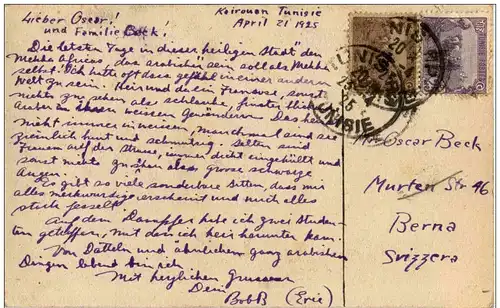 Kairouan Tunisie
April 21 1925
Lieber Oscar!
und Familie Beck!
Die letzten Tage in dieser heiligen Stadt den
Mekka Africas, das arabischer sein soll als Mekka
selbst. Ich hatte oft das gefühl in einer andern
Welt zu sein. Hier und da ein Franzose, sonst
nicht zu sehen als schlanke, finster blickende
Araber in ihren weissen Gewändern. Das heisst
nicht immer in weissen, manchmal sind sie
ziemlich bunt und schmutzig. Selten sind
Frauen auf der Strasse, immer dicht eingehüllt und
sonst nichts zu sehen als grosse schwarze
Augen.
Es gibt so viele sonderbare Sitten, dass mir
alles merkwürdig erscheint und mich alles
stark fesselt.
Auf dem Dampfer habe ich zwei Studen-
ten getroffen, mit den ich hier herunter kam.
Von Datteln und ähnlichem ganz arabischen
Dingen lebend bin ich
Mit herzlichen Grüssen
Dein
BobB (Eric)
TUNIS
TUNISIE
Oscar Beck
Murten Str 46
Berna
Svizzera